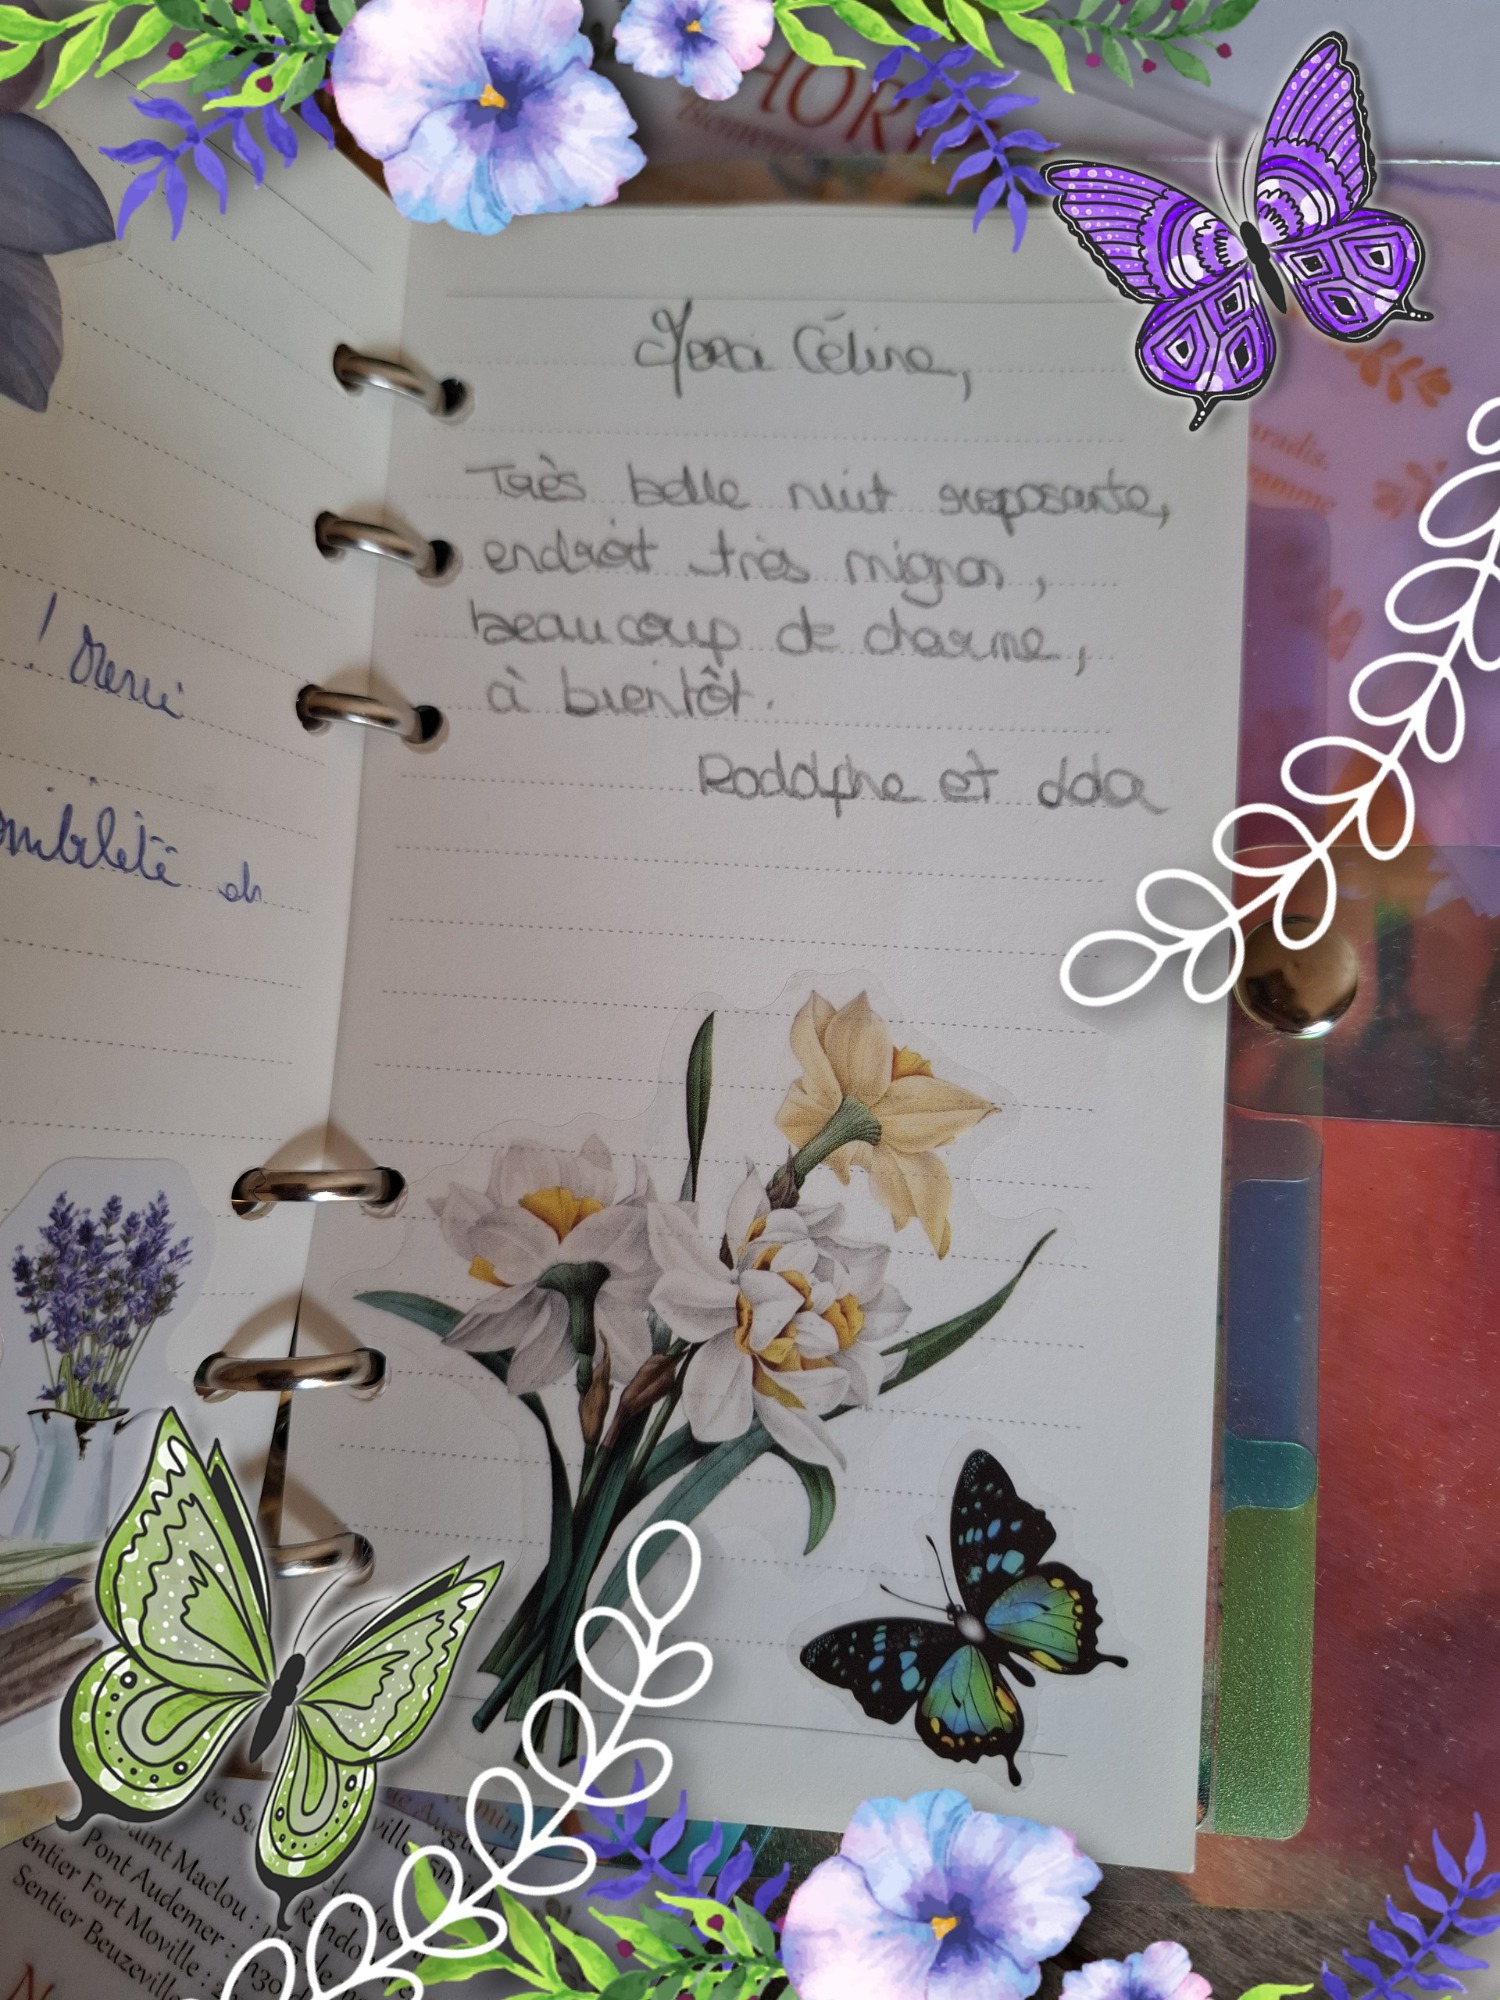 HORT
Bienvenue
Merci Céline,
Très belle nuit reposante,
endroit très mignon,
beaucoup de charme,
à bientôt.
Rodolphe et Ida
! Merci
onibilité et
aradis.
ramme
Saint Maclou :
Pont Audemer :
entier Fort Moville :
Sentier Beuzeville :
Rando